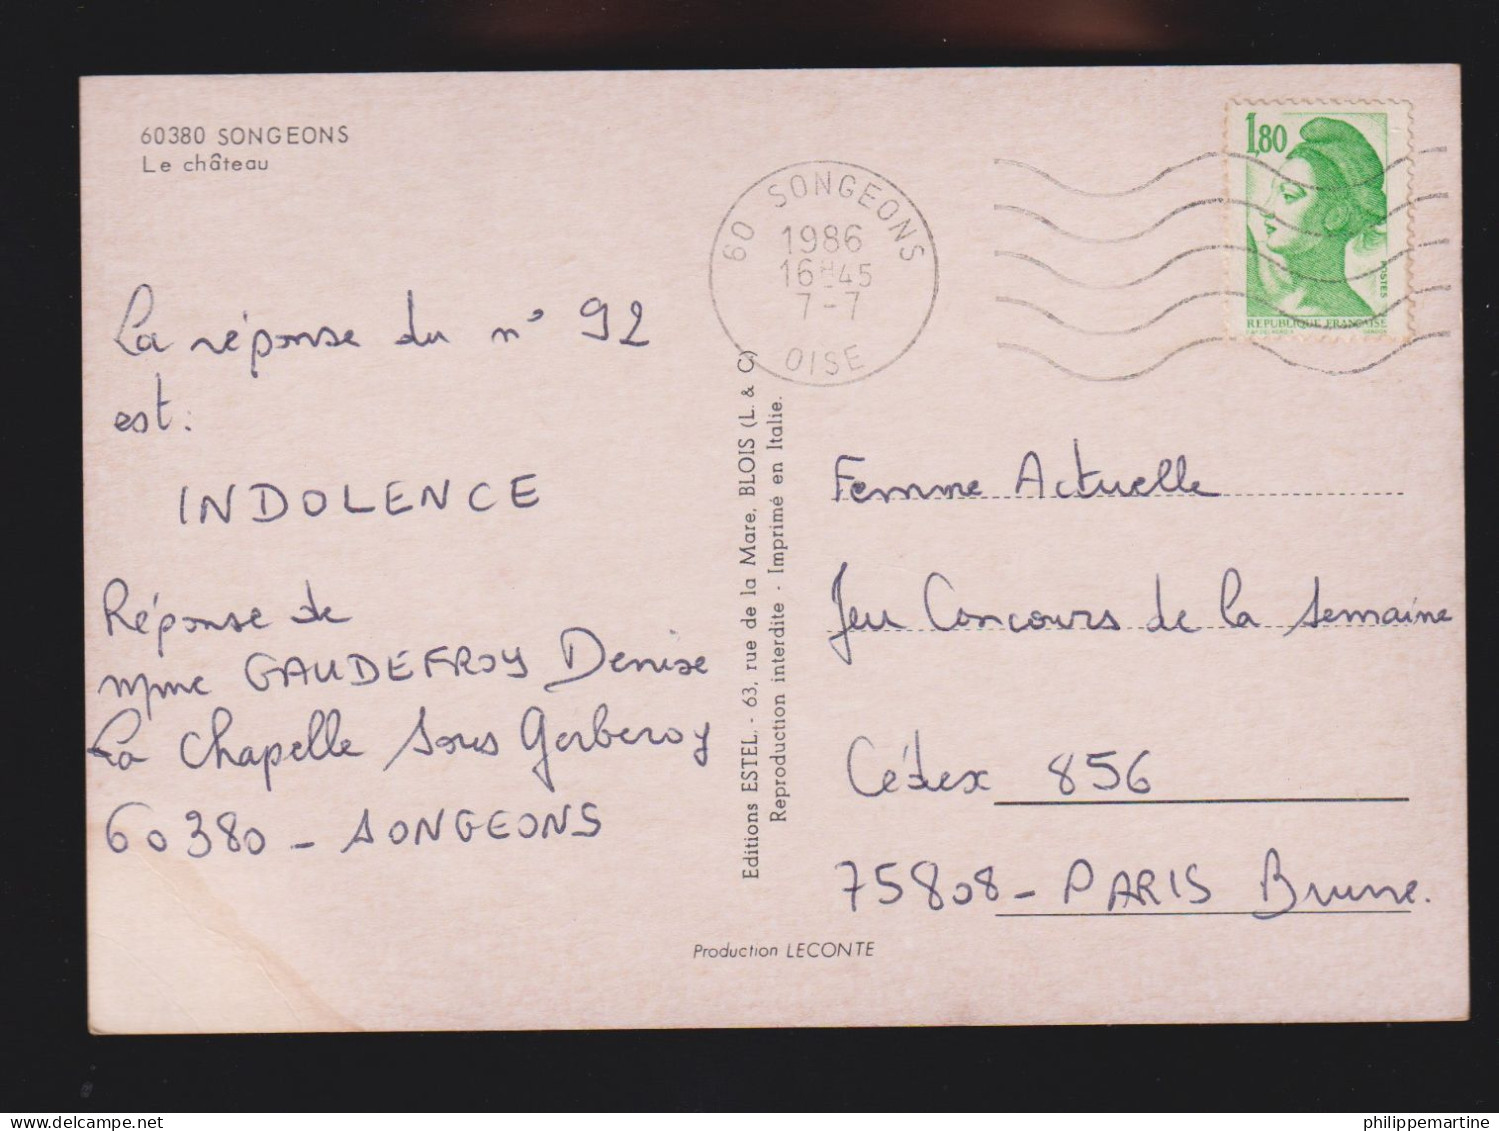 60380 SONGEONS
Le château
60 SONGEONS
1986
16H45
7-7
OISE
1,80
POSTES
REPUBLIQUE FRANÇAISE
La réponse du n° 92
est:
INDOLENCE
Réponse de
mme GAUDEFROY Denise
La Chapelle sous Gerberoy
60380 - SONGEONS
Editions ESTEL. - 63, rue de la Mare, BLOIS (L. & C)
Reproduction interdite - Imprimé en Italie.
Femme Actuelle
Jeu Concours de la semaine
Cédex 856
75808 - PARIS Brune.
Production LECONTE
philippemartine